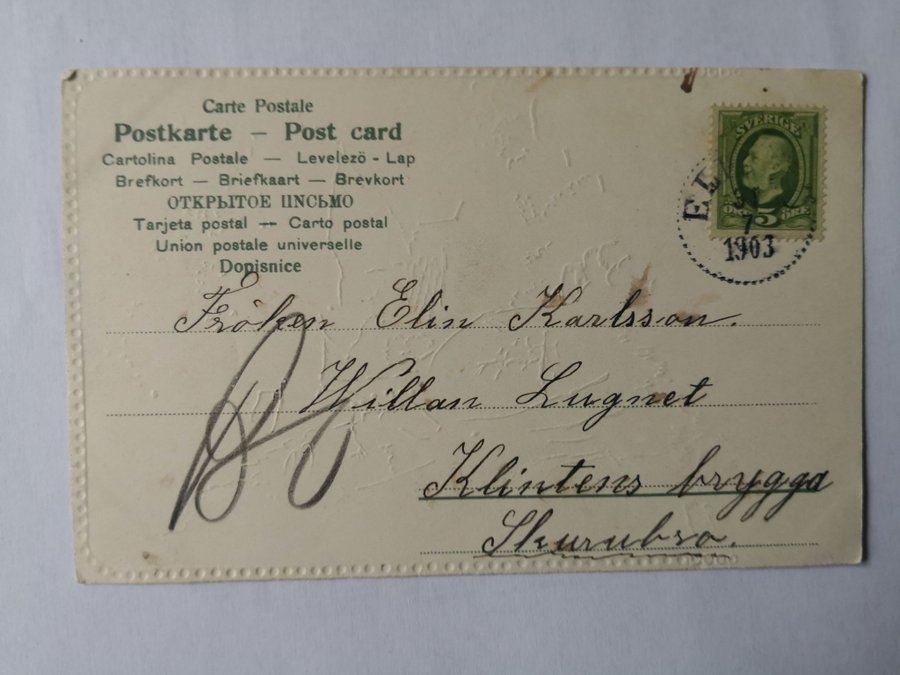 Carte Postale
Postkarte – Post card
Cartolina Postale — Levelezö - Lap
Brefkort — Briefkaart — Brevkort
ОТКРЫТОЕ ПИСЬМО
Tarjeta postal — Carto postal
Union postale universelle
Dopisnice
SVERIGE
ÖRE 5 ÖRE
7
1903
Fröken Elin Karlsson.
Willan Lugnet
Klintens brygga
Skurubro.